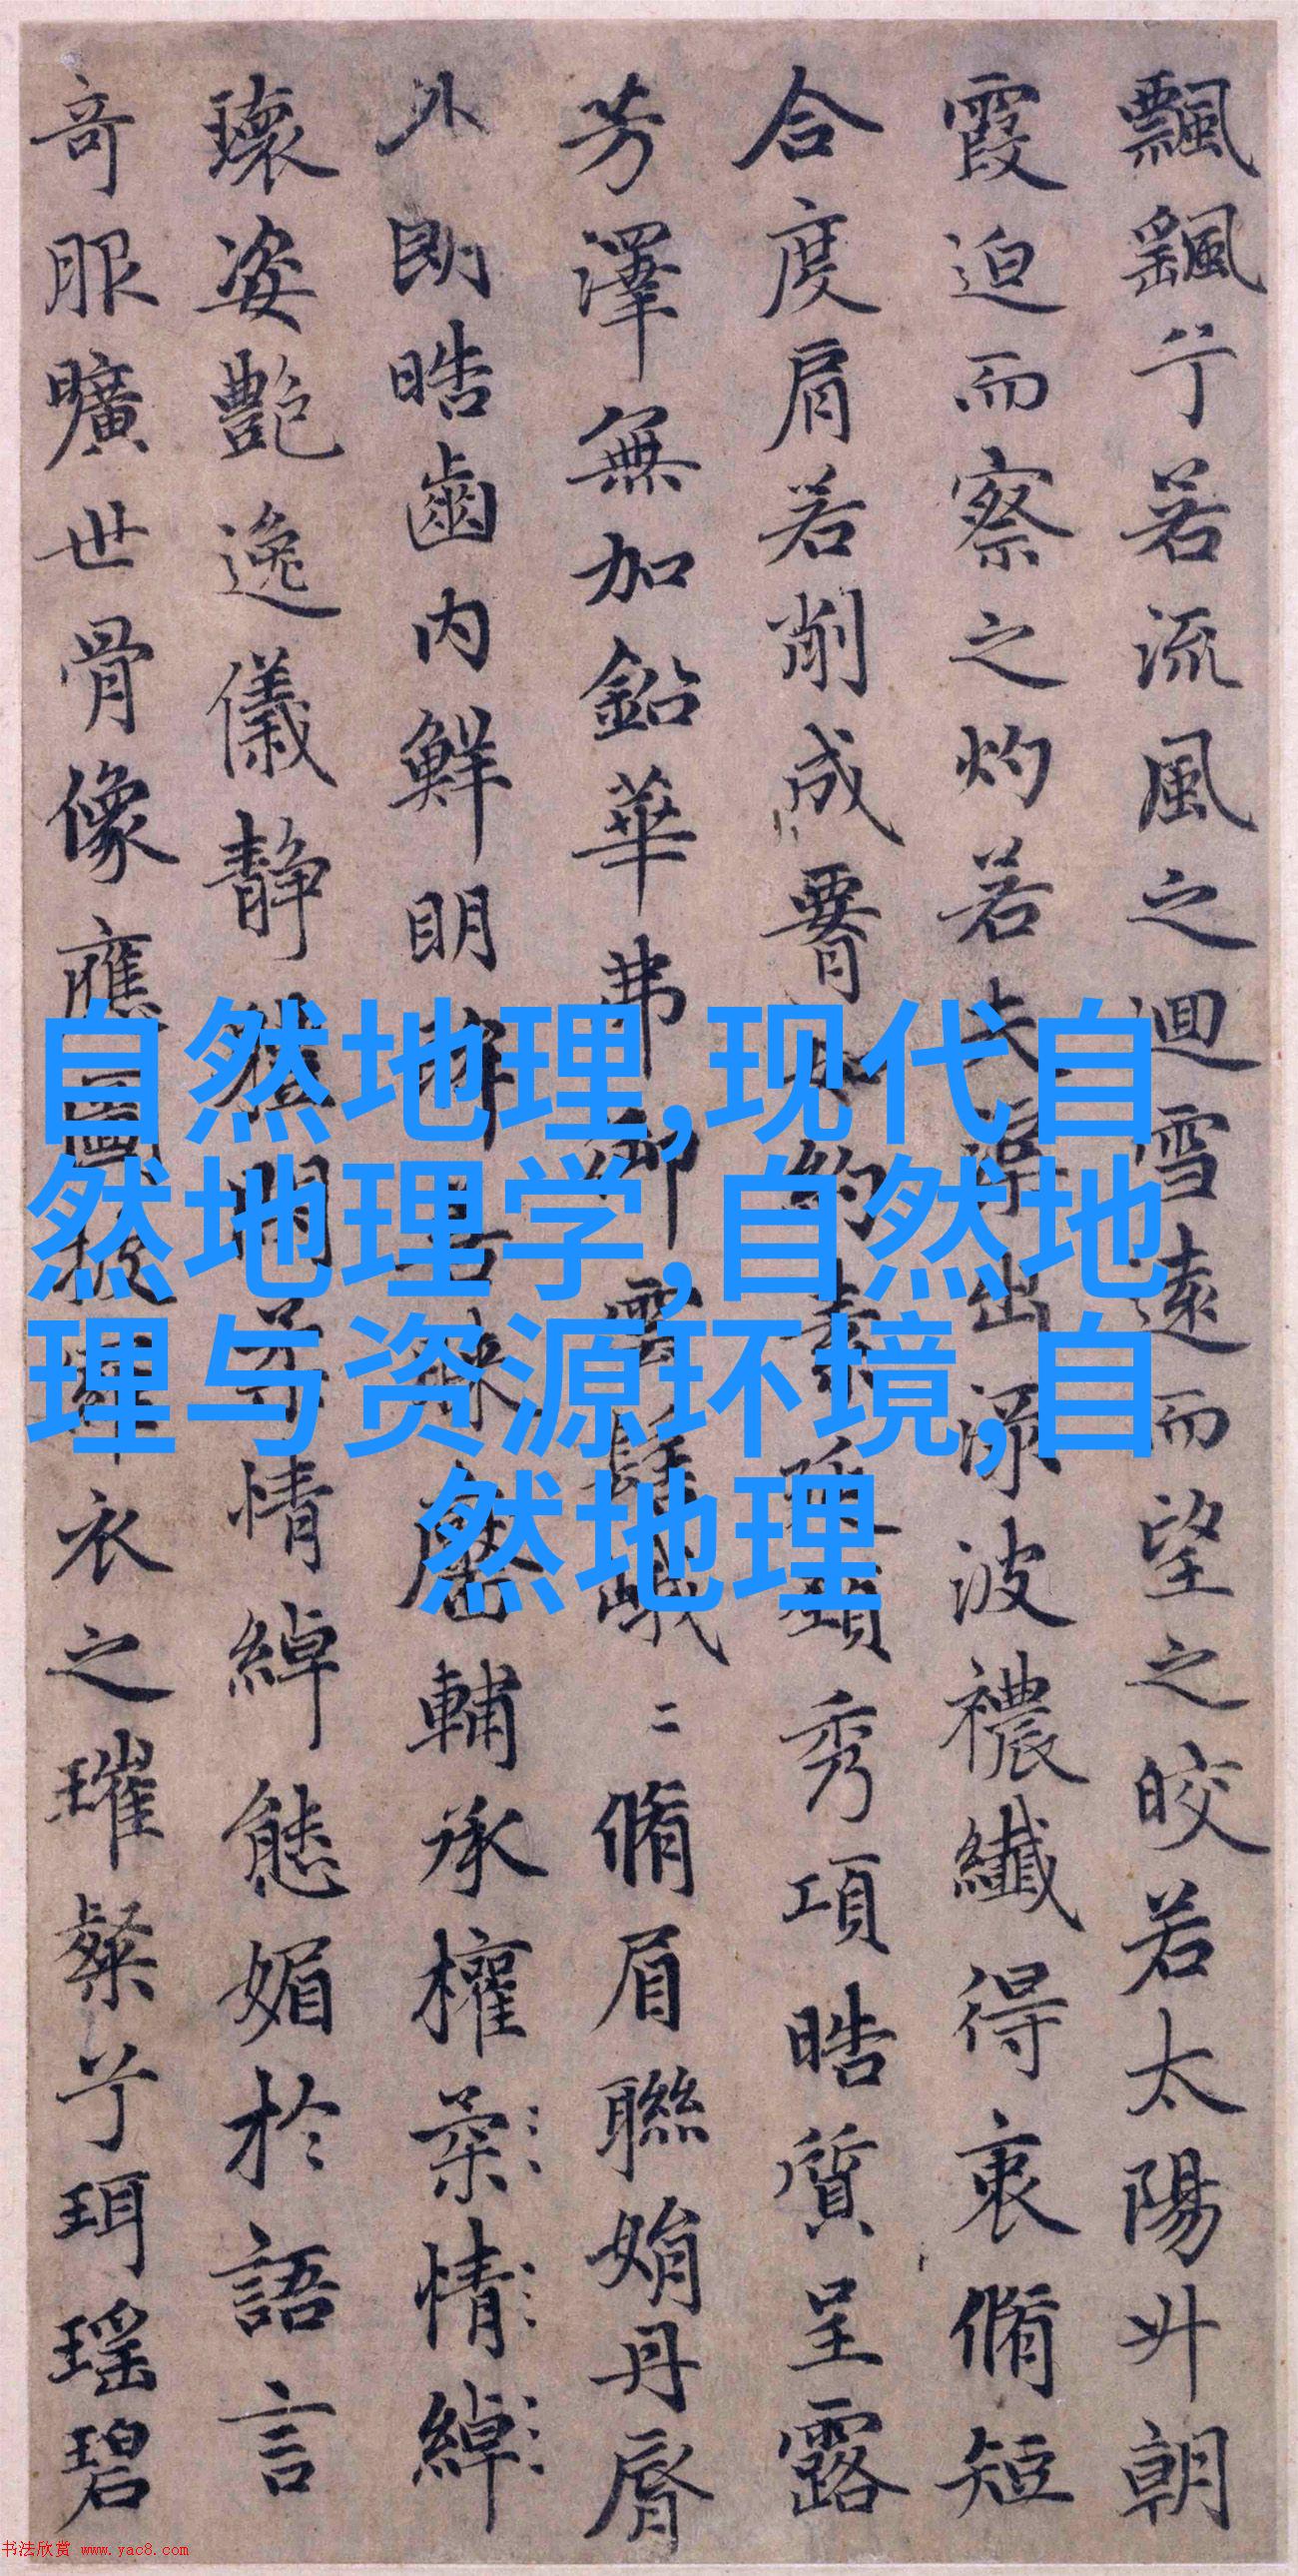 飄飖兮若流風之迴雪遠而望之皎若太陽升朝
霞迫而察之灼若夫蕖出淥波襛纖得衷脩短
合度肩若削成如約素延頸秀項皓質呈露
芳澤無加鉛華弗御雲髻峨二脩眉聯娟丹脣
外朗皓齒內鮮明眸善睞靨輔承權柔情綽
瓌姿艷逸儀靜體閑柔情綽態媚於語言
奇服曠世骨像應圖披羅衣之璀粲兮珥瑤碧
自然地理,现代自
然地理学,自然地
理与资源环境,自
然地理
书法欣赏 www.yac8.com